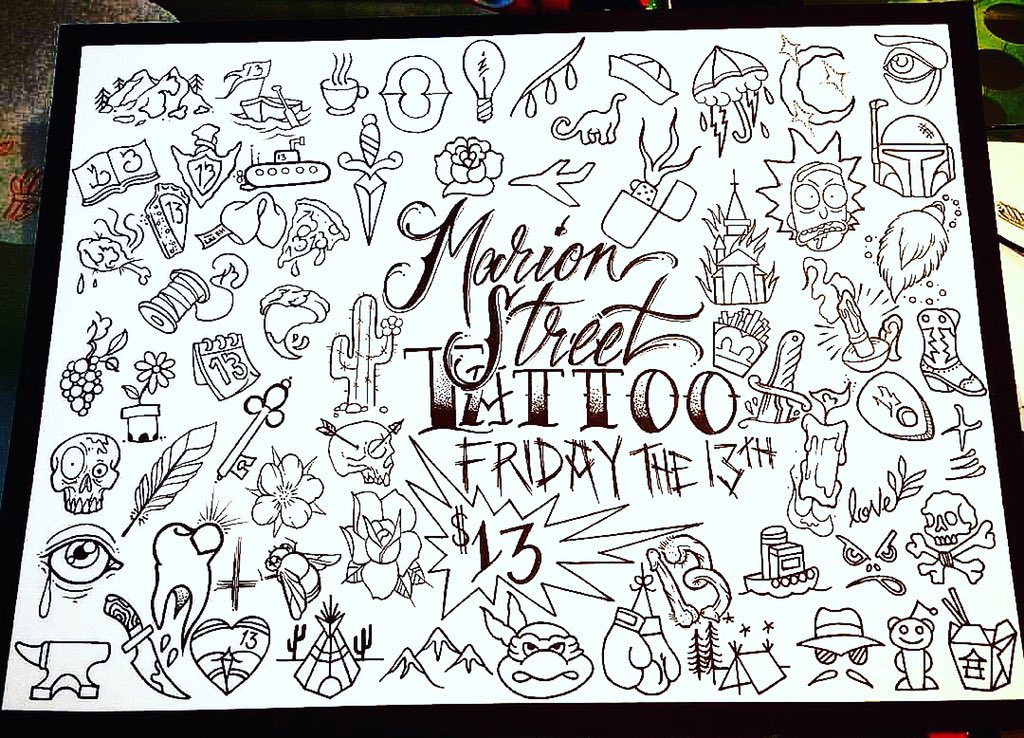 13
13
13
13
13
13
Marion
Street
TATTOO
FRIDAY THE 13TH
$13
love
13